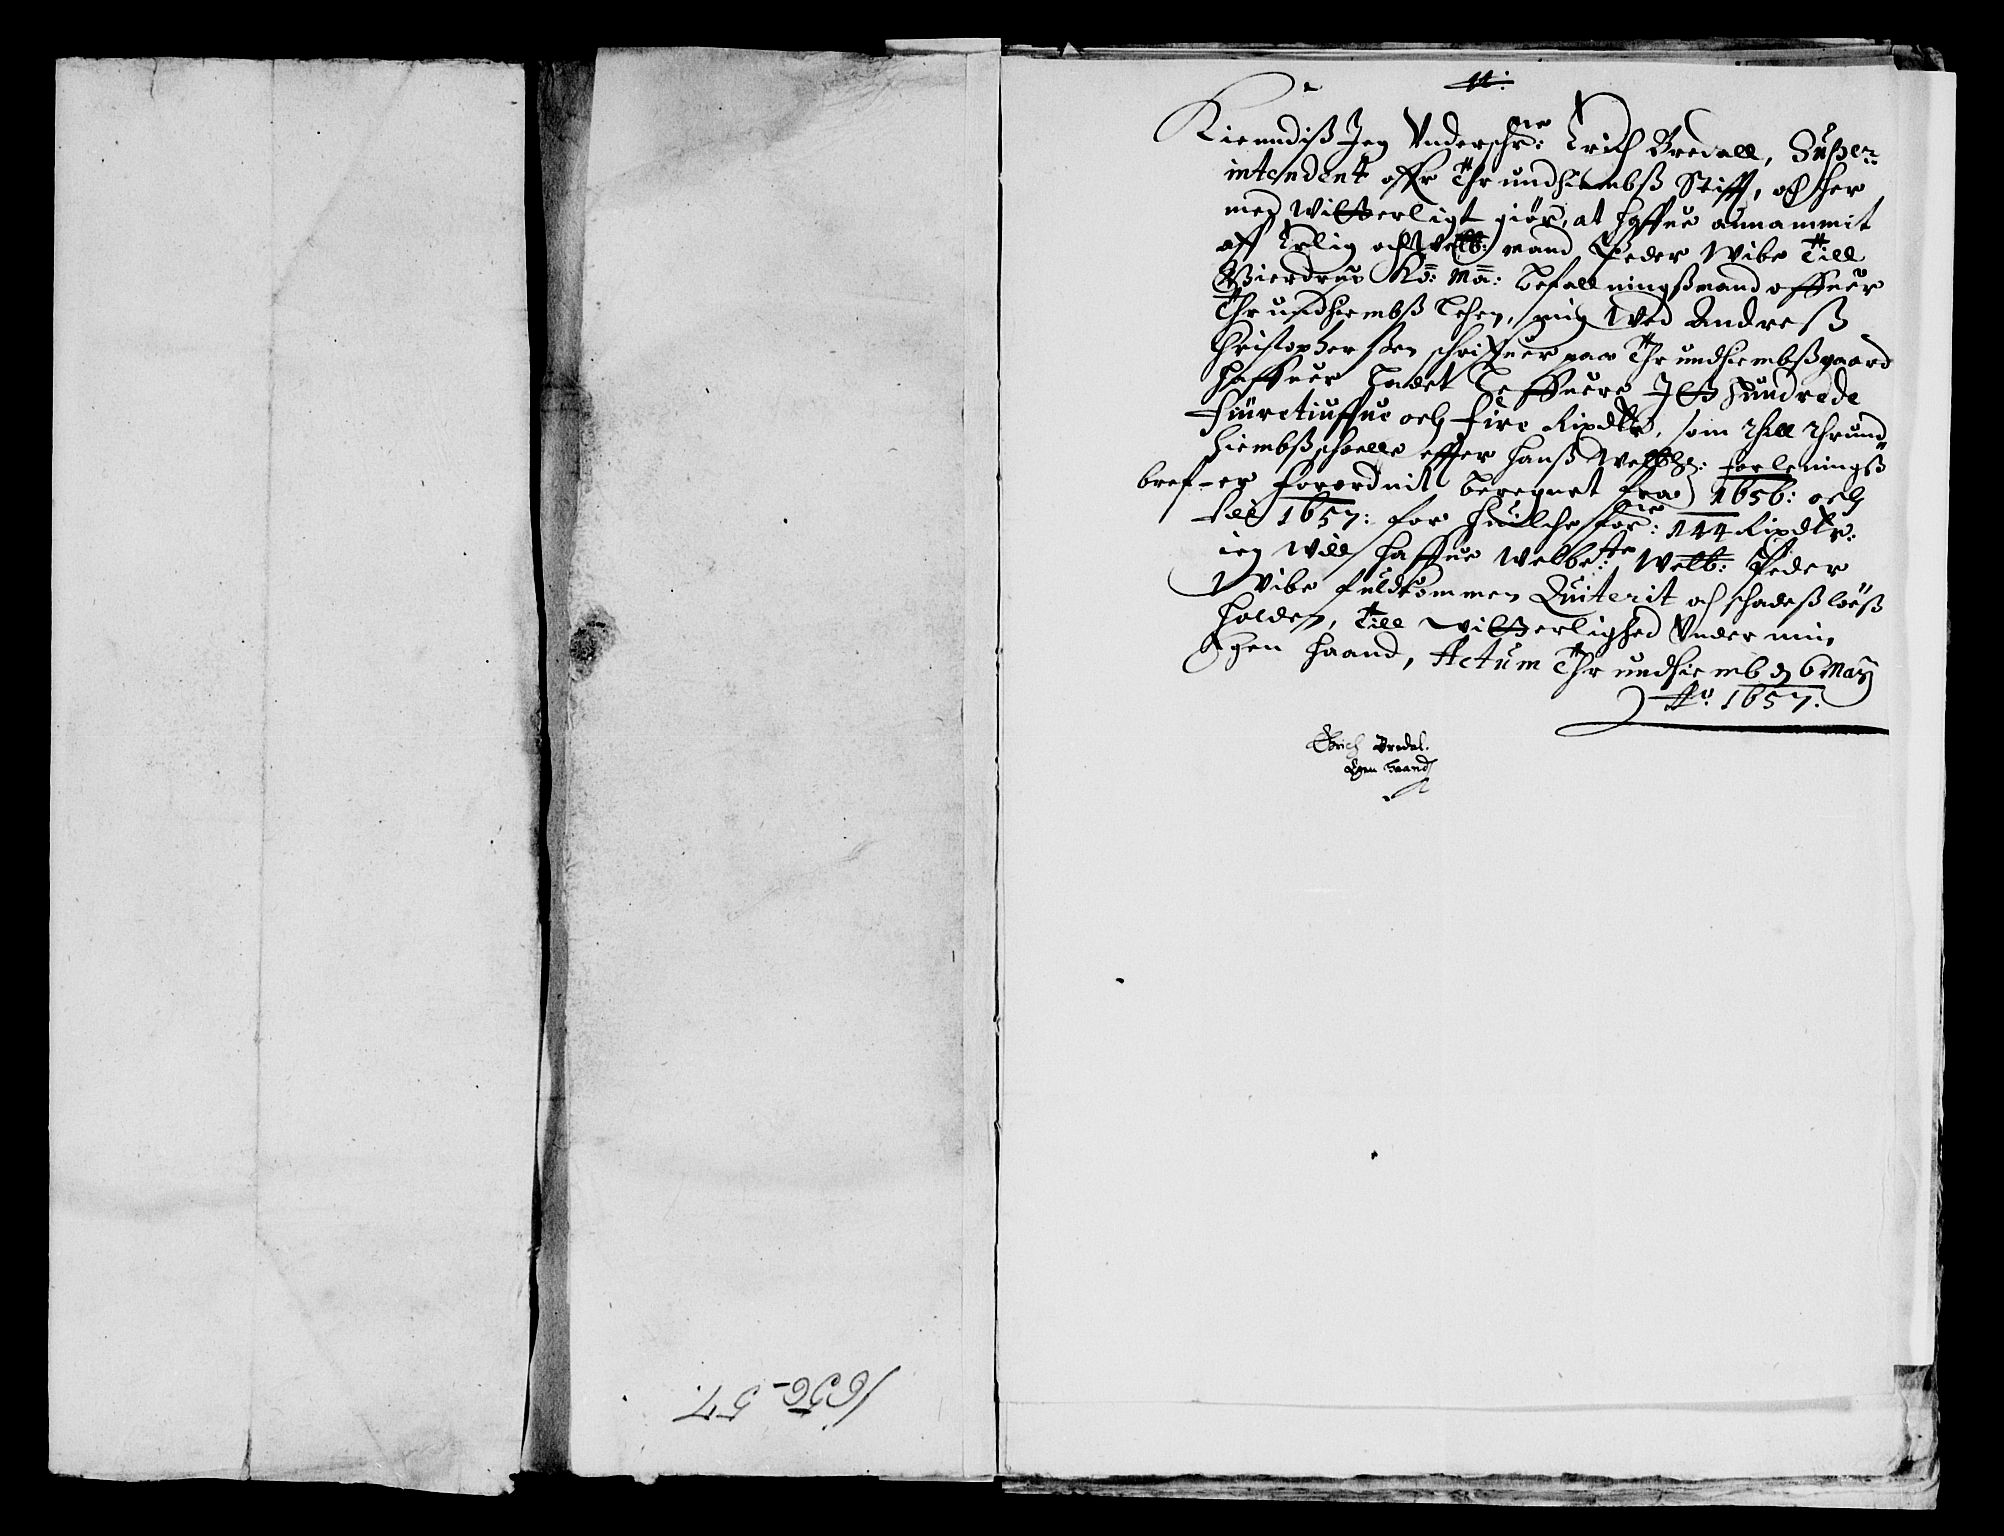 11:
Kiendiß Jeg Vnderschr:ne Erich Bredall, Super=
intendent offr Thrundhiembß Stifft, och her
med Witterligt giör, at haffue annammit
aff Erlig och Welb: mand Peder Wibe Till
Gierdrup Ko: Ma: befallningßmand offuer
Thrundhiembß Lehen, mig Wed Andreß
Christophersen schriffuer paa Thrundhiembßgaard
haffuer ladet Leffuere Jtt hundrede
Fiüretiuffue och fire Rixdlr, som Thill Thrund=
hiembß schoelle effter hanß Welbhd: forlenings
bref er forordnit beregnet fra 1656: och
till 1657: for huilche for:ne 144 Rixdlr:
ieg will haffue Welbe:te Welb: Peder
Wibe fuldkommen Quiterit och schadeßlöeß
holden, Till witterlighed Vnder min
Egen haand, Actum Thrundhiemb d 6 Maij
Ao: 1657.
Erich Bredal.
Egen haand
1656-57.